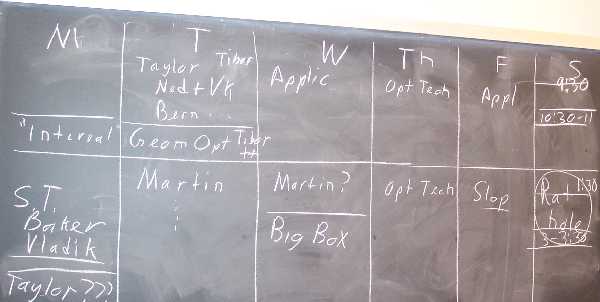 M
T
W
Th
F
S
Taylor Tibor
Ned + Vk
Bern...
Applic
Opt Tech
Appl
9:30
10:30-11
"Interval"
Geom Opt Tibor
S.T.
Baker
Vladik
Taylor???
Martin
Martin?
Big Box
Opt Tech
Stop
Rat 1:30
hole
3-3:30